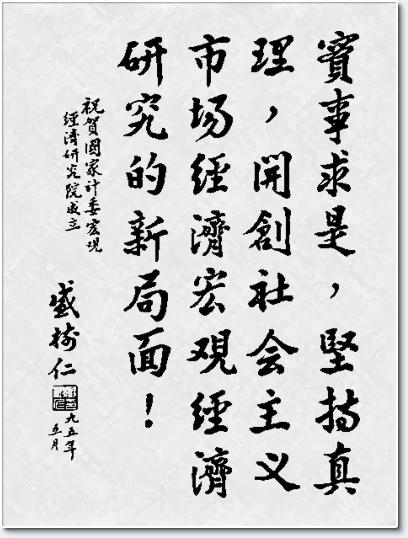 實事求是，堅持真
理，開創社会主义
市场經濟宏观經濟
研究的新局面！
祝賀國家计委宏观
經濟研究院成立
盛樹仁
九五年
五月